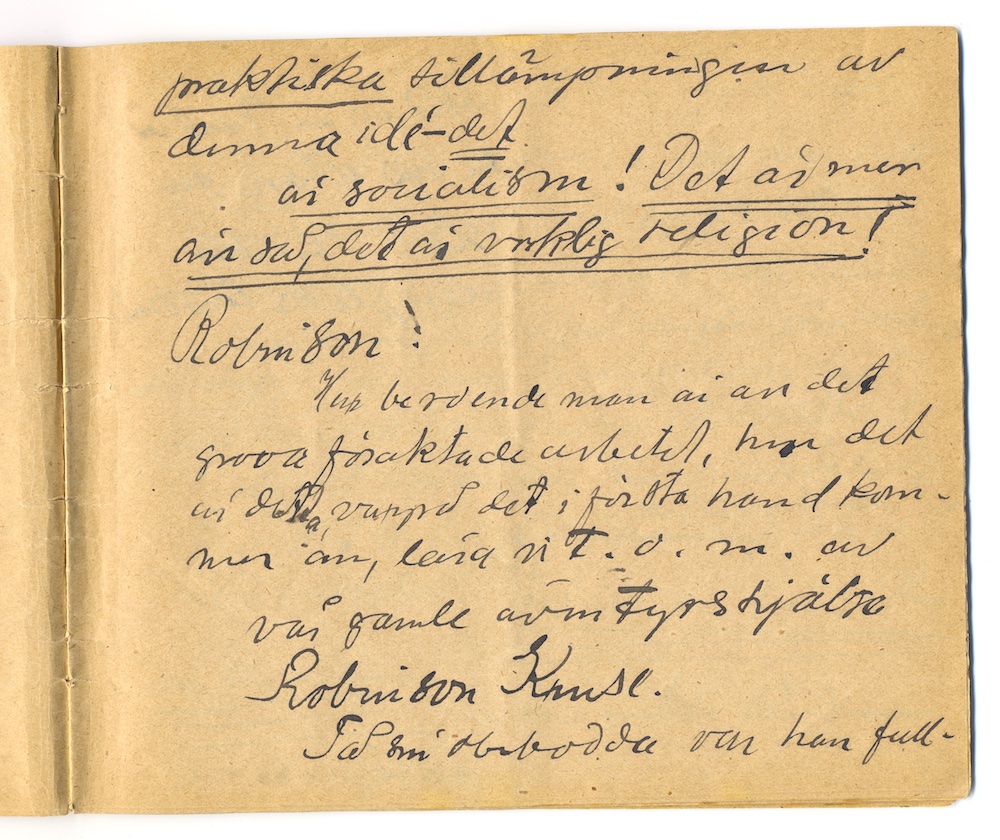 praktiska tillämpningen av
denna idé – det
är socialism! Det är mer
än så, det är verklig religion!
Robinson!
Hur beroende man är av det
grova föraktade arbetet, hur det
är detta, varpå det i första hand kom-
mer än, lära vi t. o. m. av
vår gamle äventyrshjälte
Robinson Kruse.
På sin obebodda var han full-